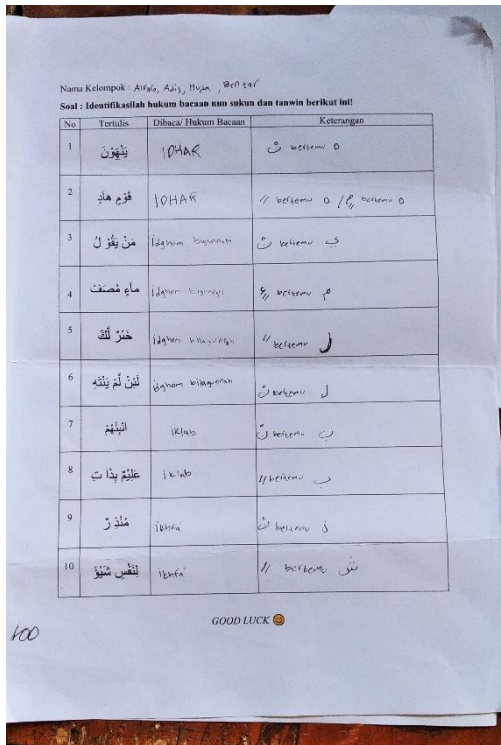 Nama Kelompok : Alfaro, Adis, Huda, Bentar
Soal : Identifikasilah hukum bacaan nun sukun dan tanwin berikut ini!
No Tertulis Dibaca/ Hukum Bacaan Keterangan
1 يَنْهَوْنَ IDHAR نْ bertemu ه
2 قَوْمٍ هَادٍ IDHAR // bertemu ه / bertemu ه
3 مَنْ يَقُوْ لُ idghom bigunnah نْ bertemu ي
4 مآءٍ مُصَفَّت idghom bigunnah bertemu م
5 خَيْرٌ لَّكَ idghom bilagunnah // bertemu ل
6 لَئِنْ لَّمْ يَنْتَهِ idghom bilagunnah نْ bertemu ل
7 اَنْبِئْهُمْ iklab نْ bertemu ب
8 عَلِيْمٌ بِذَا تِ iklab // bertemu ب
9 مُنْذِ رٌ ikhfa' نْ bertemu ذ
10 لِنَفْسٍ شَيْئً ikhfa' // bertemu ش
GOOD LUCK 😊
100